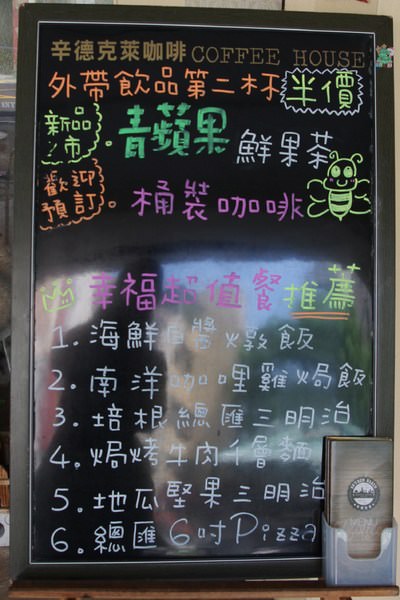 辛德克萊咖啡 COFFEE HOUSE
外帶飲品第二杯半價
新品上市.青蘋果鮮果茶
歡迎預訂.桶裝咖啡
幸福超值餐推薦
1.海鮮白醬燉飯
2.南洋咖哩雞焗飯
3.培根總匯三明治
4.焗烤牛肉千層麵
5.地瓜堅果三明治
6.總匯6吋Pizza
MENU